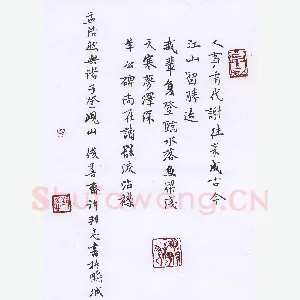 人事有代謝往來成古今
江山留勝迹
我輩復登臨水落魚梁淺
天寒夢澤深
羊公碑尚在讀罷淚沾襟
孟浩然與諸子登峴山
Shufawang.CN